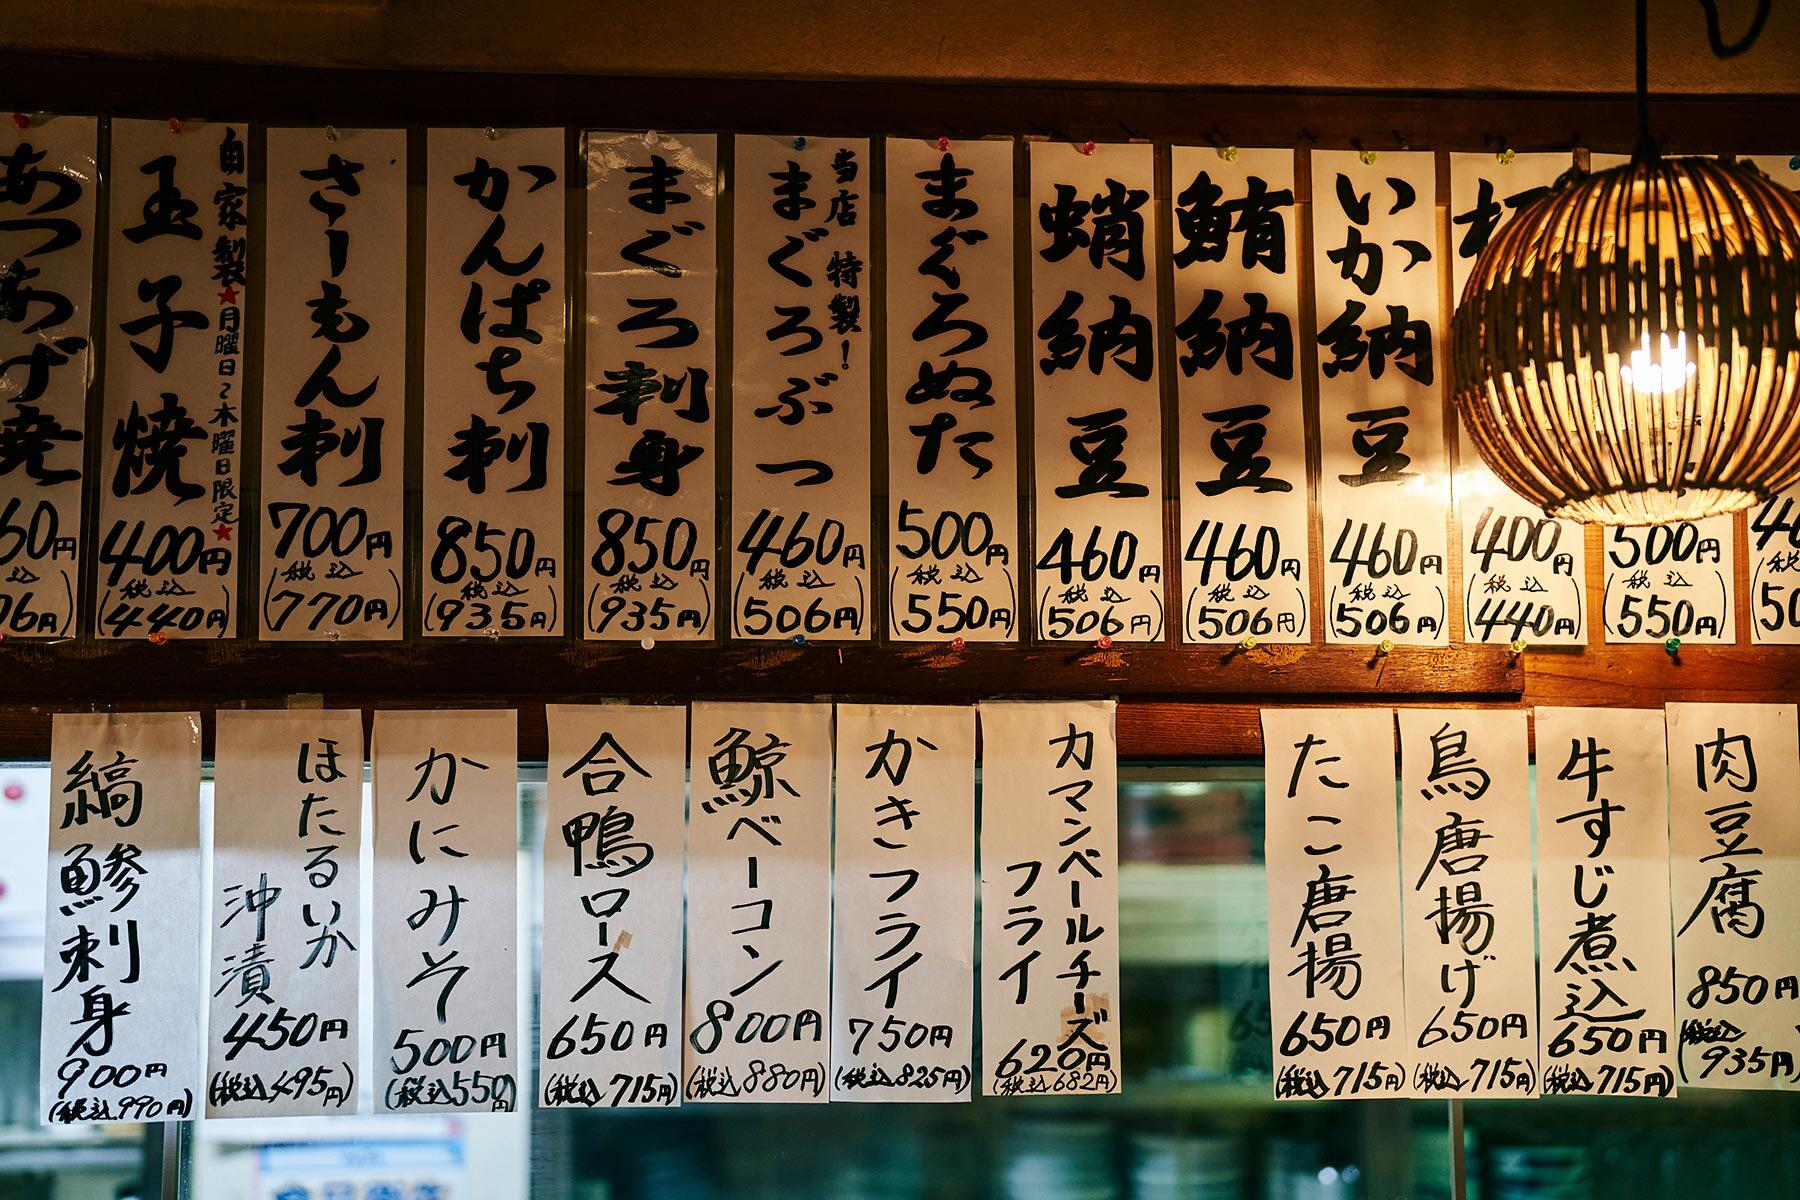 あつあげ焼
60円
税込
06円)
自家製★月曜日〜木曜日限定★
玉子焼
400円
税込
(440円)
さーもん刺
700円
税込
(770円)
かんぱち刺
850円
税込
(935円)
まぐろ刺身
850円
税込
(935円)
当店特製!
まぐろぶつ
460円
税込
(506円)
まぐろぬた
500円
税込
(550円)
蛸納豆
460円
税込
(506円)
鮪納豆
460円
税込
(506円)
いか納豆
460円
税込
(506円)
400円
税込
(440円)
500円
税込
(550円)
縞鯵刺身
900円
(税込990円)
ほたるいか
沖漬
450円
(税込495円)
かにみそ
500円
(税込550円)
合鴨ロース
650円
(税込715円)
鯨ベーコン
800円
(税込880円)
かきフライ
750円
(税込825円)
カマンベールチーズ
フライ
620円
(税込682円)
たこ唐揚
650円
(税込715円)
鳥唐揚げ
650円
(税込715円)
牛すじ煮込
650円
(税込715円)
肉豆腐
850円
(税込
935円)